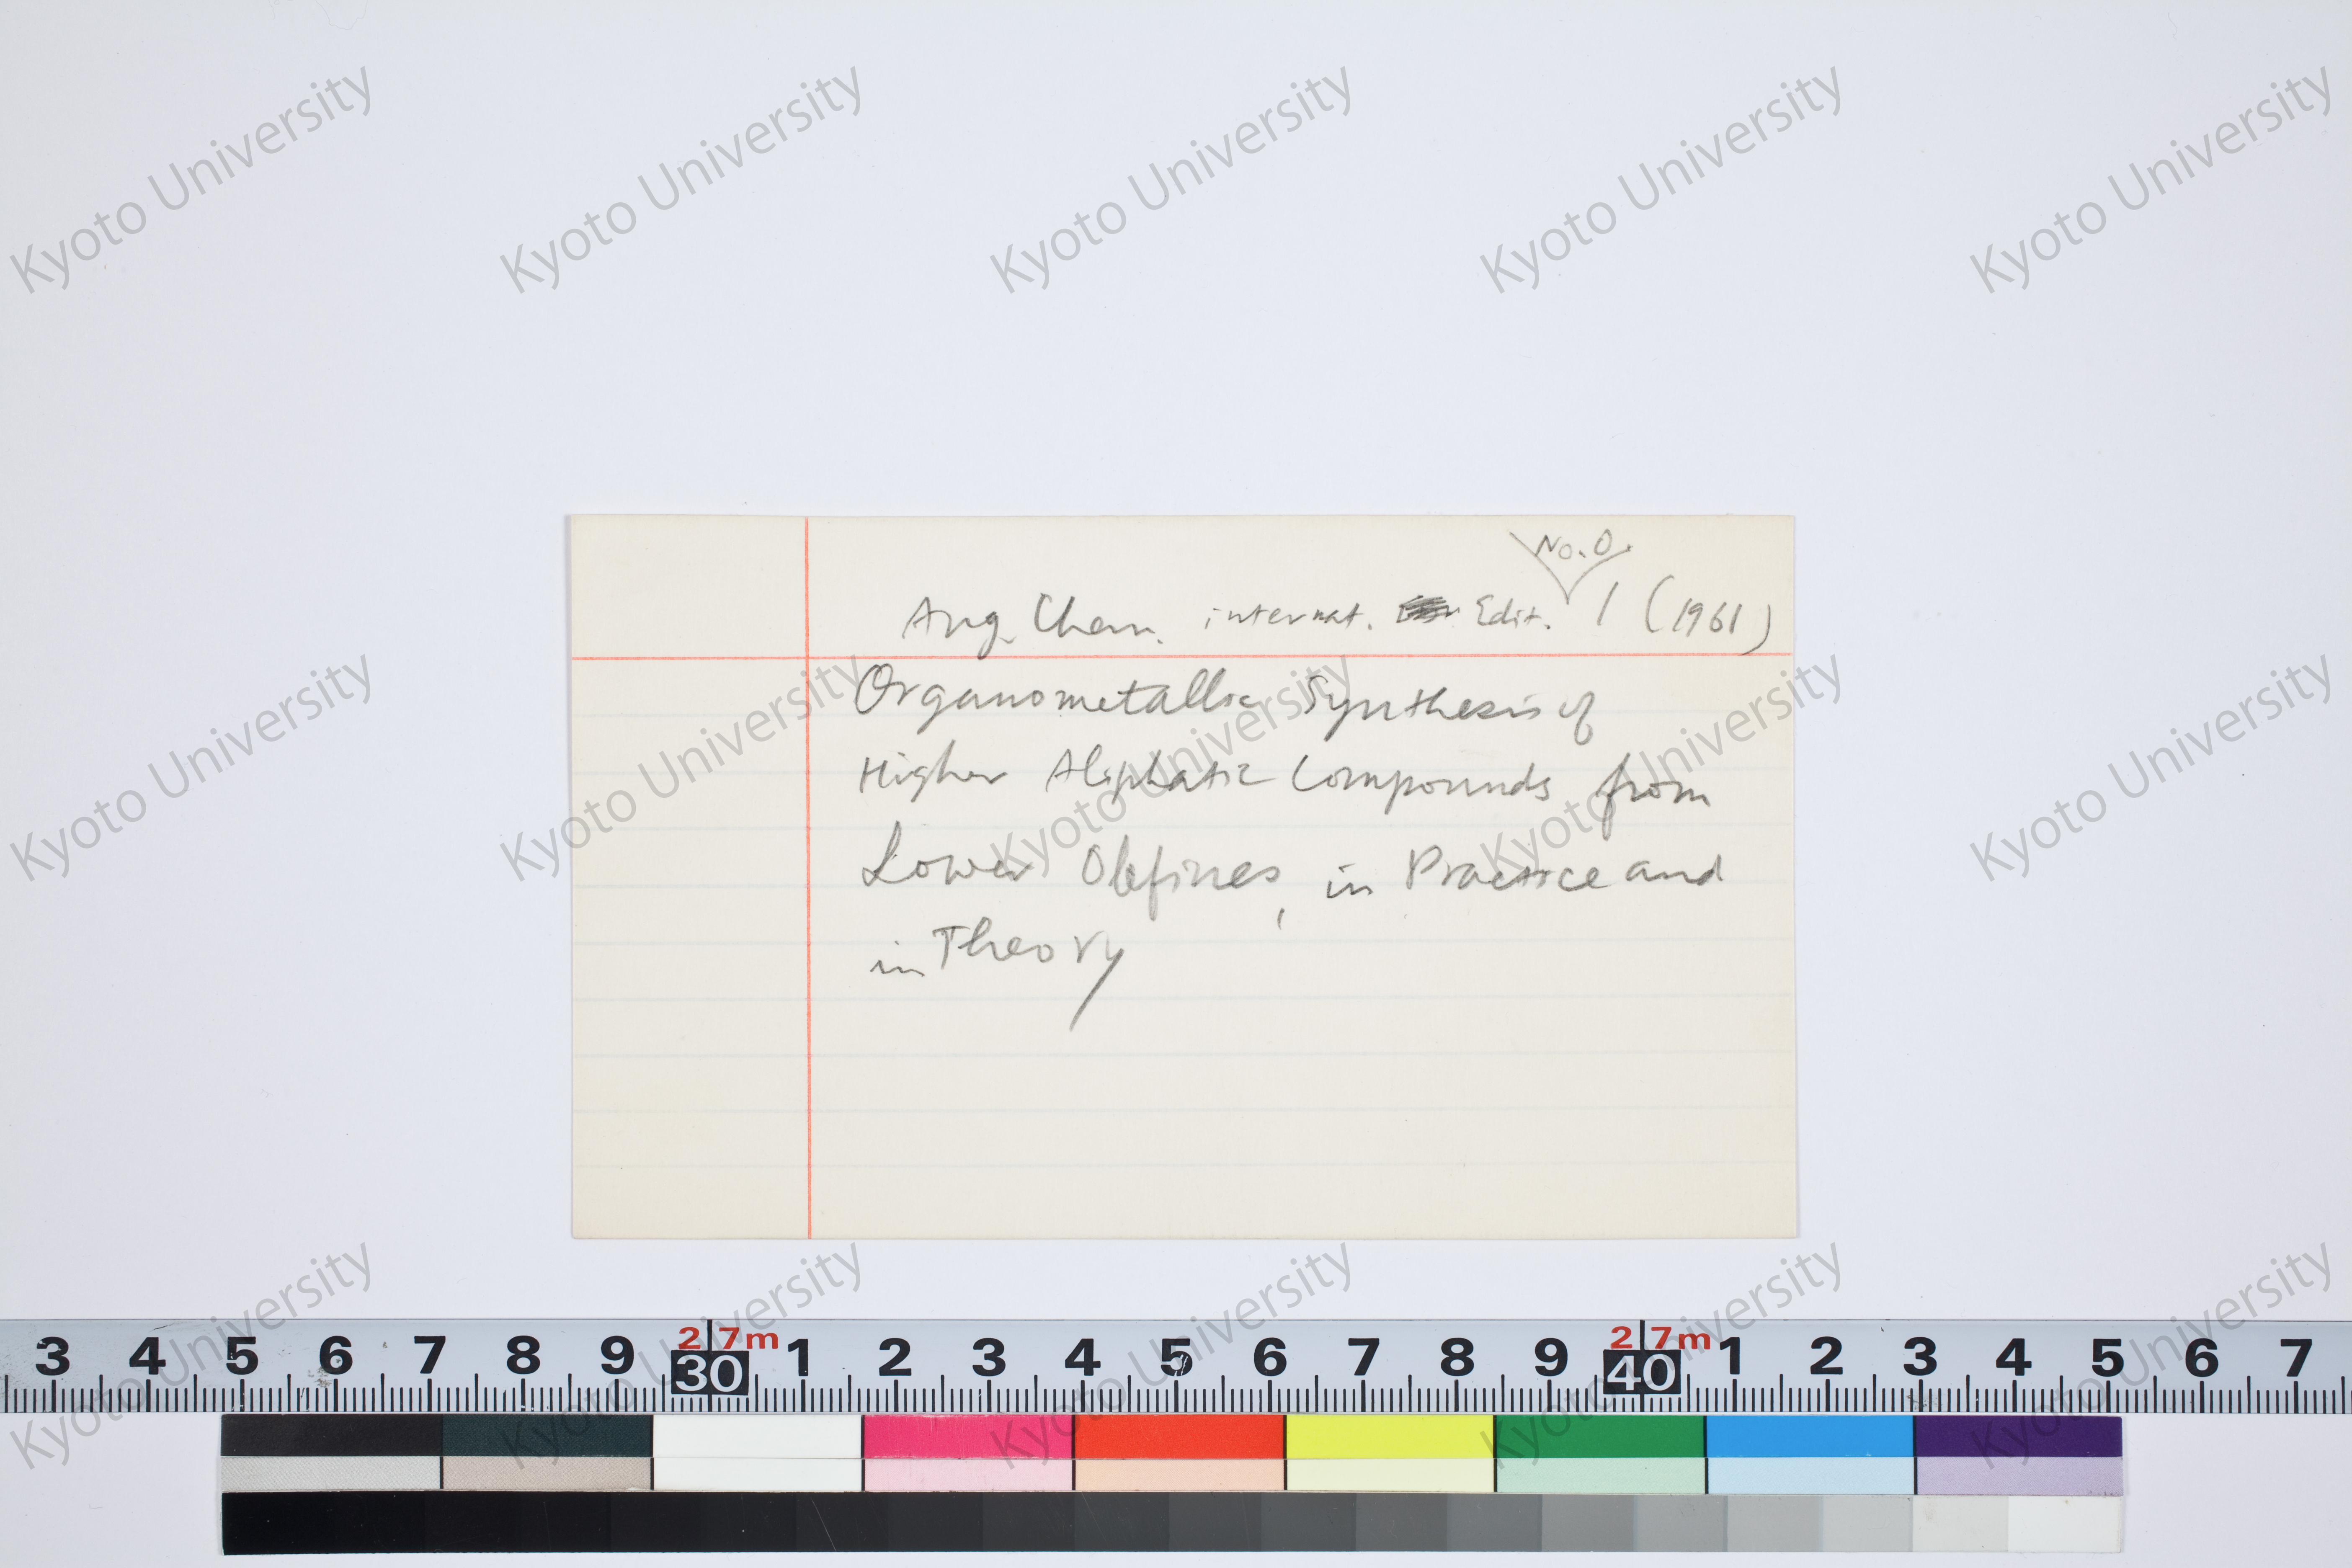 No. 0.
Ang. Chem. internat. Edit. 1 (1961)
Organometallic Synthesis of
Higher Aliphatic Compounds from
Lower Olefines, in Practice and
in Theory
3 4 5 6 7 8 9 30 1 2 3 4 5 6 7 8 9 40 1 2 3 4 5 6 7
2 7m 2 7m
Kyoto University Kyoto University Kyoto University Kyoto University Kyoto University
Kyoto University Kyoto University Kyoto University Kyoto University Kyoto University
Kyoto University Kyoto University Kyoto University Kyoto University Kyoto University